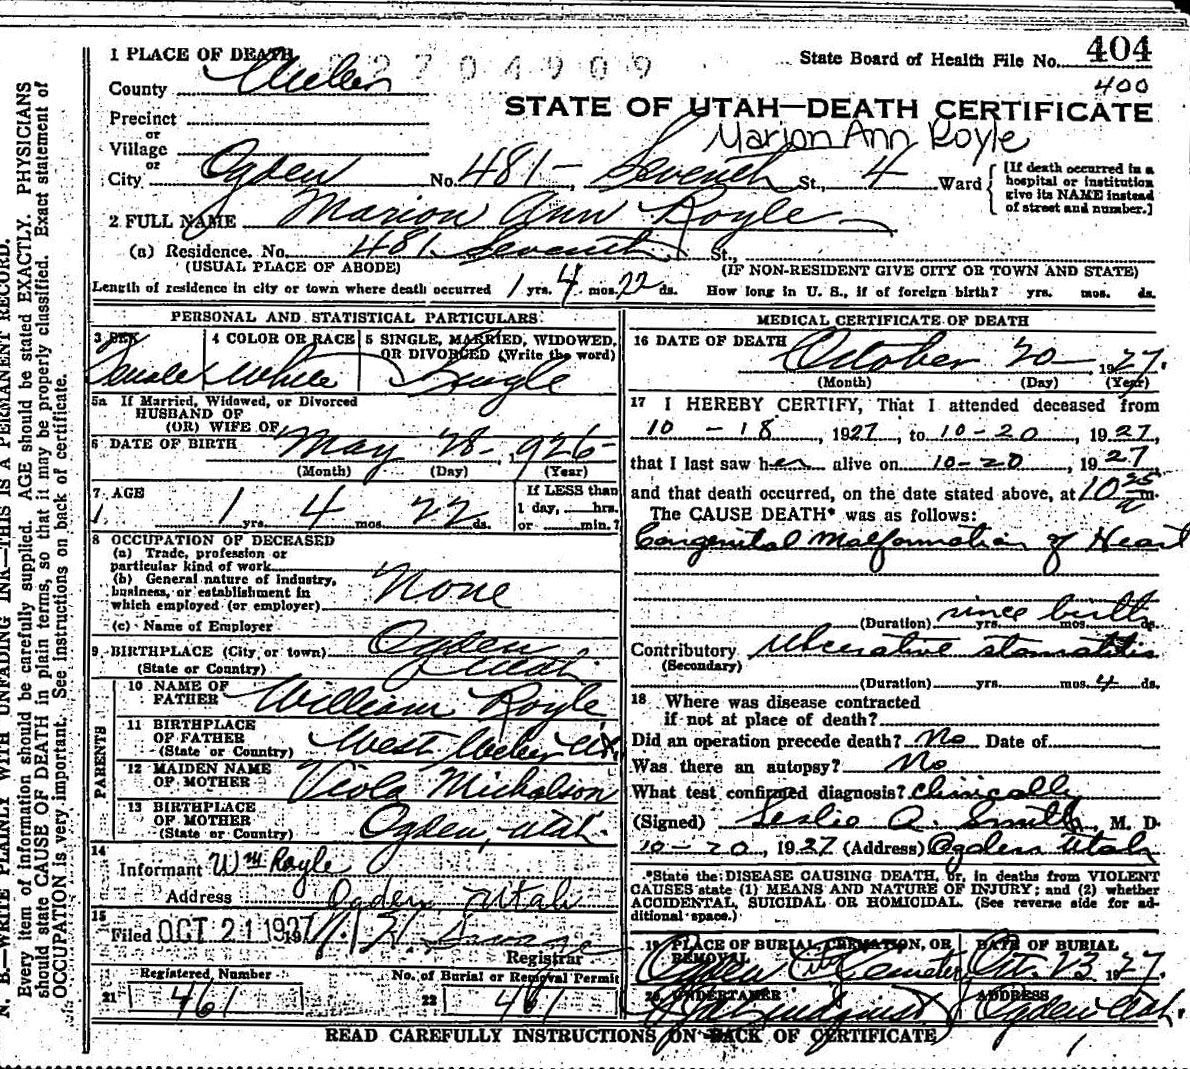 N. B.—WRITE PLAINLY WITH UNFADING INK—THIS IS A PERMANENT RECORD.
Every item of information should be carefully supplied. AGE should be stated EXACTLY. PHYSICIANS
should state CAUSE OF DEATH in plain terms, so that it may be properly classified. Exact statement of
OCCUPATION is very important. See instructions on back of certificate.
State Board of Health File No. 404
400
1 PLACE OF DEATH
County Weber
STATE OF UTAH—DEATH CERTIFICATE
Marion Ann Royle
Precinct
or
Village
or
City Ogden No. 481 – Seventh St., 4 Ward
[If death occurred in a
hospital or institution
give its NAME instead
of street and number.]
2 FULL NAME Marion Ann Royle
(a) Residence. No. 481 Seventh St.,
(USUAL PLACE OF ABODE) (IF NON-RESIDENT GIVE CITY OR TOWN AND STATE)
Length of residence in city or town where death occurred 1 yrs. 4 mos. 22 ds. How long in U. S., if of foreign birth? yrs. mos. ds.
PERSONAL AND STATISTICAL PARTICULARS
3 SEX Female
4 COLOR OR RACE White
5 SINGLE, MARRIED, WIDOWED,
OR DIVORCED (Write the word)
Single
5a If Married, Widowed, or Divorced
HUSBAND OF
(OR) WIFE OF
6 DATE OF BIRTH May 28- 1926-
(Month) (Day) (Year)
7 AGE
1 yrs. 4 mos. 22 ds.
If LESS than
1 day, hrs.
or min.?
8 OCCUPATION OF DECEASED
(a) Trade, profession or
particular kind of work
(b) General nature of industry,
business, or establishment in
which employed (or employer)
None
(c) Name of Employer
9 BIRTHPLACE (City or town) Ogden
(State or Country) Utah.
PARENTS
10 NAME OF
FATHER William Royle
11 BIRTHPLACE
OF FATHER
(State or Country) West Weber Ut.
12 MAIDEN NAME
OF MOTHER Viola Micholson
13 BIRTHPLACE
OF MOTHER
(State or Country) Ogden, Utah.
14
Informant Wm Royle
Address Ogden Utah
15
Filed OCT 21 1927
Registrar
Registered Number
21 461
No. of Burial or Removal Permit
22 461
MEDICAL CERTIFICATE OF DEATH
16 DATE OF DEATH October 20- 1927.
(Month) (Day) (Year)
17 I HEREBY CERTIFY, That I attended deceased from
10 - 18, 1927, to 10-20, 1927,
that I last saw her alive on 10-20, 1927
and that death occurred, on the date stated above, at 10 25 a m.
The CAUSE DEATH* was as follows:
Congenital Malformation of Heart
since birth
(Duration) yrs. mos. ds.
Contributory Ulcerative stomatitis
(Secondary)
(Duration) yrs. mos. 4 ds.
18 Where was disease contracted
if not at place of death?
Did an operation precede death? No Date of
Was there an autopsy? No
What test confirmed diagnosis? Clinically
(Signed) Leslie A. Smith, M. D.
10-20, 1927 (Address) Ogden Utah
*State the DISEASE CAUSING DEATH, or, in deaths from VIOLENT
CAUSES state (1) MEANS AND NATURE OF INJURY; and (2) whether
ACCIDENTAL, SUICIDAL OR HOMICIDAL. (See reverse side for ad-
ditional space.)
19 PLACE OF BURIAL, CREMATION, OR
REMOVAL
Ogden City Cemetery
DATE OF BURIAL
Oct. 23 1927.
20 UNDERTAKER
Lindquist
ADDRESS
Ogden Utah.
READ CAREFULLY INSTRUCTIONS ON BACK OF CERTIFICATE